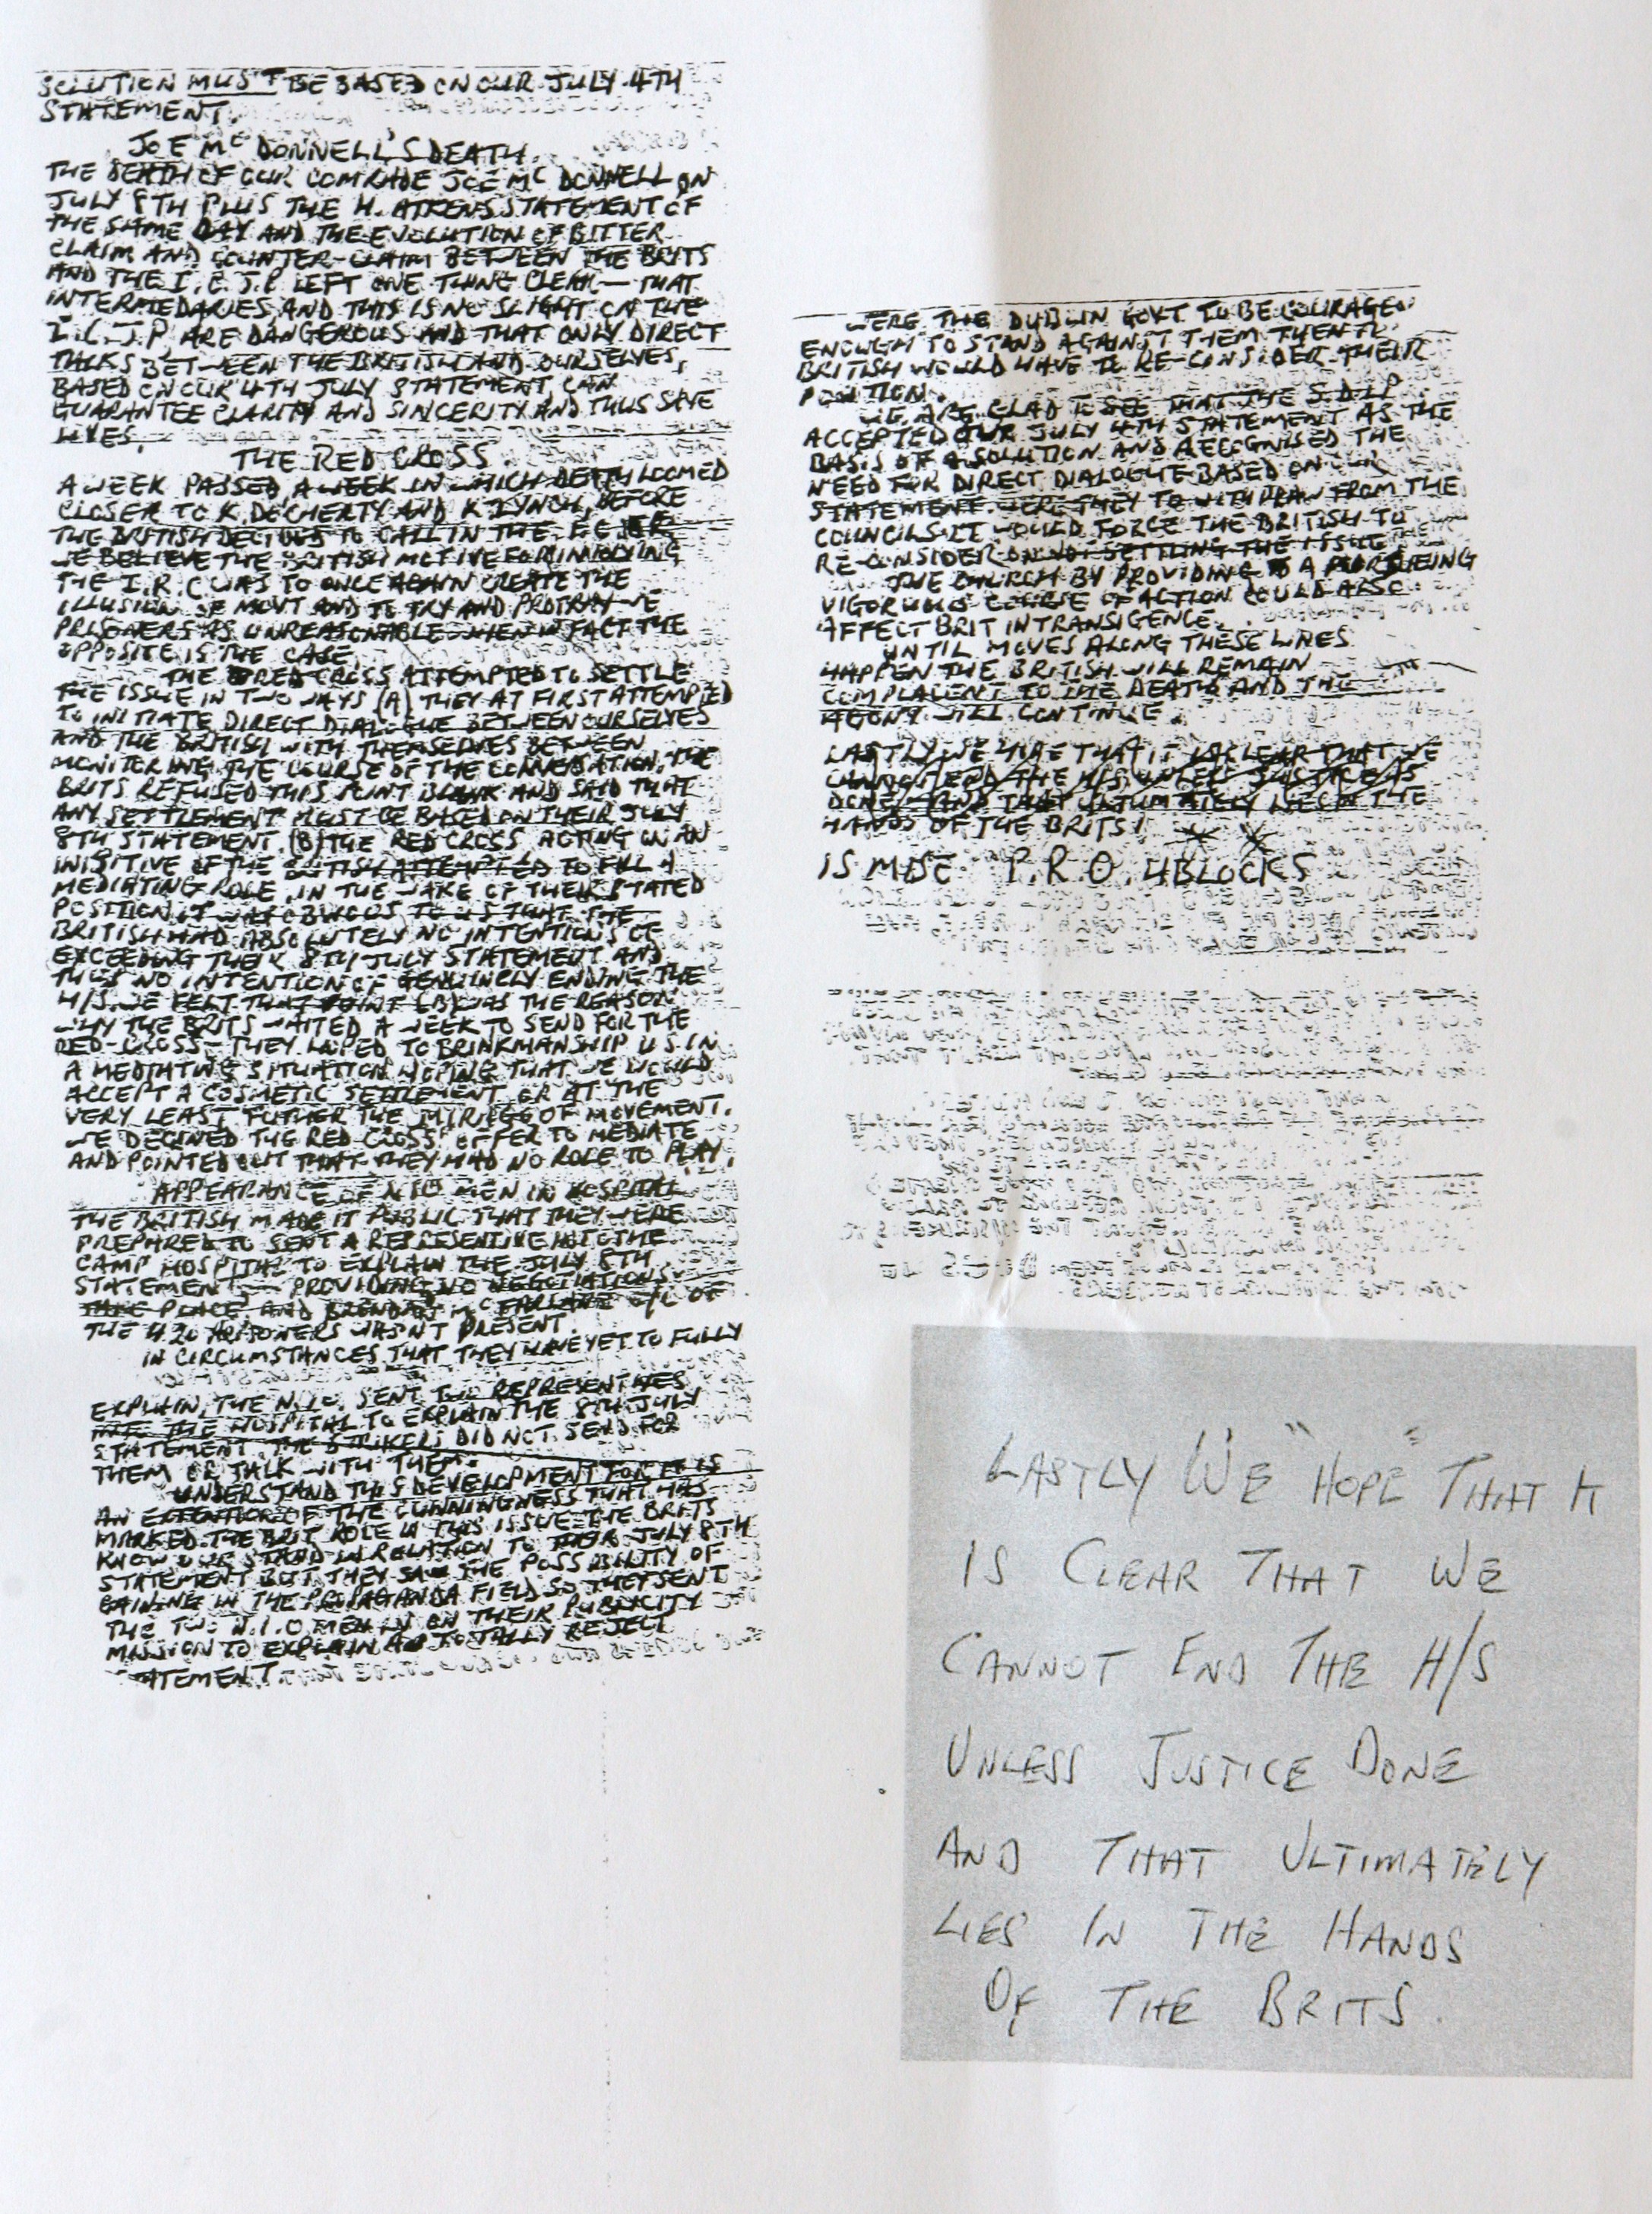 SOLUTION MUST BE BASED ON OUR JULY 4TH
STATEMENT.
JOE Mc DONNELL'S DEATH.
THE DEATH OF OUR COMRADE JOE Mc DONNELL ON
JULY 8TH PLUS THE H. ATKENS STATEMENT OF
THE SAME DAY AND THE EVOLUTION OF BITTER
CLAIM AND COUNTER-CLAIM BETWEEN THE BRITS
AND THE I.C.J.P. LEFT ONE THING CLEAR — THAT
INTERMEDARIES, AND THIS IS NO SLIGHT ON THE
I.C.J.P ARE DANGEROUS AND THAT ONLY DIRECT
TALKS BETWEEN THE BRITISH AND OURSELVES,
BASED ON OUR 4TH JULY STATEMENT, CAN
GUARANTEE CLARITY AND SINCERITY AND THUS SAVE
LIVES.
THE RED CROSS.
A WEEK PASSED, A WEEK IN WHICH DEATH LOOMED
CLOSER TO K. DOCHERTY AND K LYNCH, BEFORE
THE BRITISH DECIDED TO CALL IN THE
WE BELIEVE THE BRITISH MOTIVE FOR INVOLVING
THE I.R.C WAS TO ONCE AGAIN CREATE THE
ILLUSION OF MOVT AND TO TRY AND PROTRAY WE
PRISONERS AS UNREASONABLE WHEN IN FACT THE
OPPOSITE IS THE CASE.
THE RED CROSS ATTEMPTED TO SETTLE
THE ISSUE IN TWO WAYS (A) THEY AT FIRST ATTEMPTED
TO INITIATE DIRECT DIALOGUE BETWEEN OURSELVES
AND THE BRITISH WITH THEMSELVES BETWEEN
MONITORING THE COURSE OF THE CONVERSATION, THE
BRITS REFUSED THIS POINT BLANK AND SAID THAT
ANY SETTLEMENT MUST BE BASED ON THEIR JULY
8TH STATEMENT. (B) THE RED CROSS, ACTING ON AN
INISITIVE OF THE BRITISH ATTEMPTED TO FILL A
MEDIATING ROLE, IN THE WAKE OF THEIR STATED
POSITION IT WAS OBVIOUS TO US THAT THE
BRITISH HAD ABSOLUTELY NO INTENTIONS OF
EXCEEDING THEIR 8TH JULY STATEMENT AND
THUS NO INTENTION OF GENUINELY ENDING THE
H/S. WE FELT THAT POINT (B) WAS THE REASON
WHY THE BRITS WAITED A WEEK TO SEND FOR THE
RED-CROSS — THEY HOPED TO BRINKMANSHIP US IN
A MEDIATING SITUATION HOPING THAT WE WOULD
ACCEPT A COSMETIC SETTLEMENT OR AT THE
VERY LEAST FUTHER THE MIRAGE OF MOVEMENT.
WE DECLINED THE RED CROSS' OFFER TO MEDIATE
AND POINTED OUT THAT THEY HAD NO ROLE TO PLAY.
APPEARANCE OF N.I.O MEN IN HOSPITAL
THE BRITISH MADE IT PUBLIC THAT THEY WERE
PREPARED TO SENT A REPRESENTIVE INTO THE
CAMP HOSPITAL TO EXPLAIN THE JULY 8TH
STATEMENT — PROVIDING NO NEGOTIATIONS
TAKE PLACE AND BRENDAN Mc FARLANE O/C OF
THE H.20 PRISONERS WASN'T PRESENT.
IN CIRCUMSTANCES THAT THEY HAVE YET TO FULLY
EXPLAIN, THE N.I.O. SENT TWO REPRESENTIVES
INTO THE HOSPITAL TO EXPLAIN THE 8TH JULY
STATEMENT. THE STRIKERS DID NOT SEND FOR
THEM OR TALK WITH THEM.
UNDERSTAND THIS DEVELOPMENT FOR IT IS
AN EXTENTION OF THE CUNNINGNESS THAT HAS
MARKED THE BRIT ROLE IN THIS ISSUE. THE BRITS
KNOW OUR STAND IN RELATION TO THEIR JULY 8TH
STATEMENT BUT THEY SAW THE POSSIBILITY OF
GAINING IN THE PROPAGANDA FIELD SO THEY SENT
THE TWO N.I.O MEN IN ON THEIR PUBLICITY
MISSION TO EXPLAIN A TOTALLY REJECT
ATEMENT.
WERE THE DUBLIN GOVT TO BE COURAGEO
ENOUGH TO STAND AGAINST THEM THEN THE
BRITISH WOULD HAVE TO RE-CONSIDER THEIR
POSITION.
WE ARE GLAD TO SEE THAT THE S.D.L.P.
ACCEPTED OUR JULY 4TH STATEMENT AS THE
BASIS OF A SOLUTION AND RECOGNISED THE
NEED FOR DIRECT DIALOGUE BASED ON OUR
STATEMENT. WERE THEY TO WITHDRAW FROM THE
COUNCILS IT WOULD FORCE THE BRITISH TO
RE-CONSIDER ON NOT SETTLING THE ISSUE.
THE CHURCH BY PROVIDING A
VIGOROUS COURSE OF ACTION COULD ALSO
AFFECT BRIT INTRANSIGENCE.
UNTIL MOVES ALONG THESE LINES
HAPPEN THE BRITISH WILL REMAIN
COMPLACENT TO THE DEATHS AND THE
AGONY WILL CONTINUE.
LASTLY WE HOPE THAT IT IS CLEAR THAT WE
CANNOT END THE H/S UNLESS JUSTICE IS
DONE, AND THAT ULTIMATELY LIES IN THE
HANDS OF THE BRITS!
IS MISE P.R.O. H BLOCKS
LASTLY WE "HOPE" THAT IT
IS CLEAR THAT WE
CANNOT END THE H/S
UNLESS JUSTICE DONE
AND THAT ULTIMATELY
LIES IN THE HANDS
OF THE BRITS.